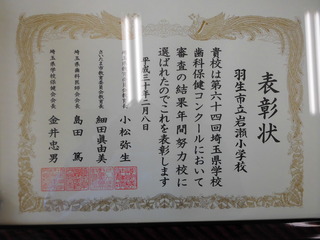 表彰状
羽生市立岩瀬小学校
貴校は第六十四回埼玉県学校
歯科保健コンクールにおいて
審査の結果年間努力校に
選ばれたのでこれを表彰します
平成三十年二月八日
小松弥生
さいたま市教育委員会教育長
細田眞由美
埼玉県歯科医師会会長
島田篤
埼玉県学校保健会会長
金井忠男